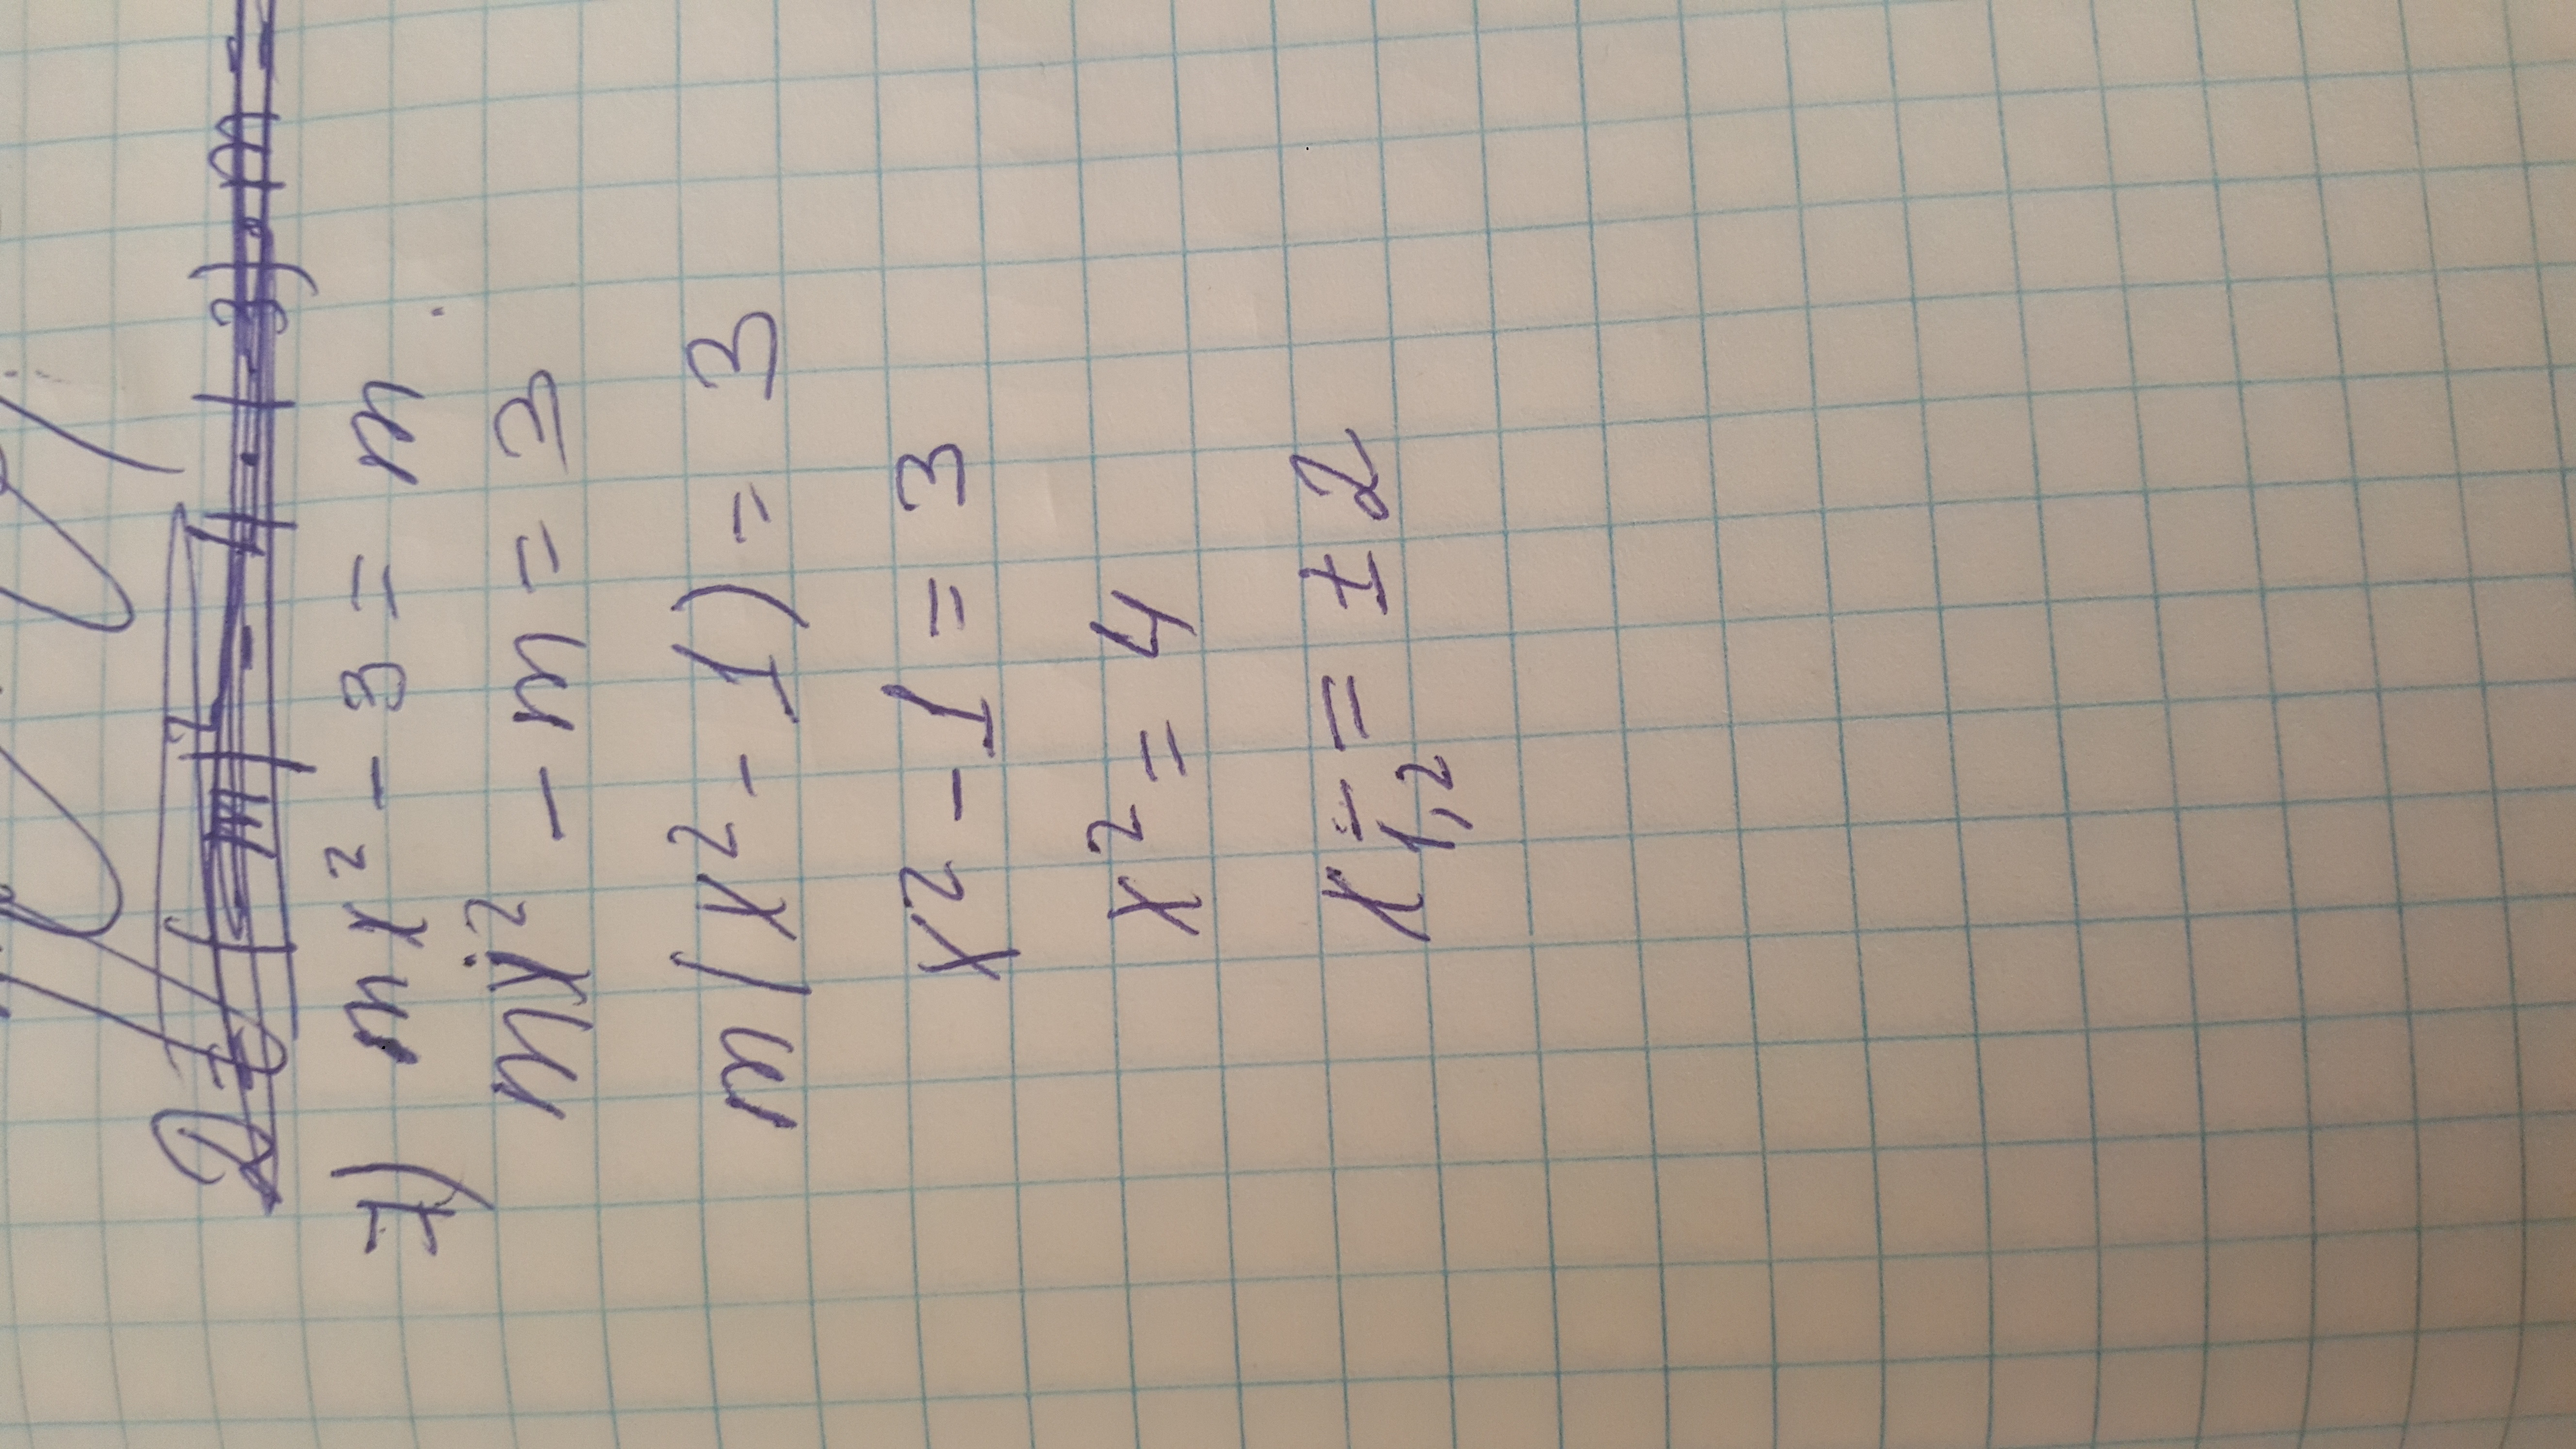 7) mx² - 3 = m
mx² - m = 3
m(x² - 1) = 3
x² - 1 = 3
x² = 4
x₁,₂ = ± 2